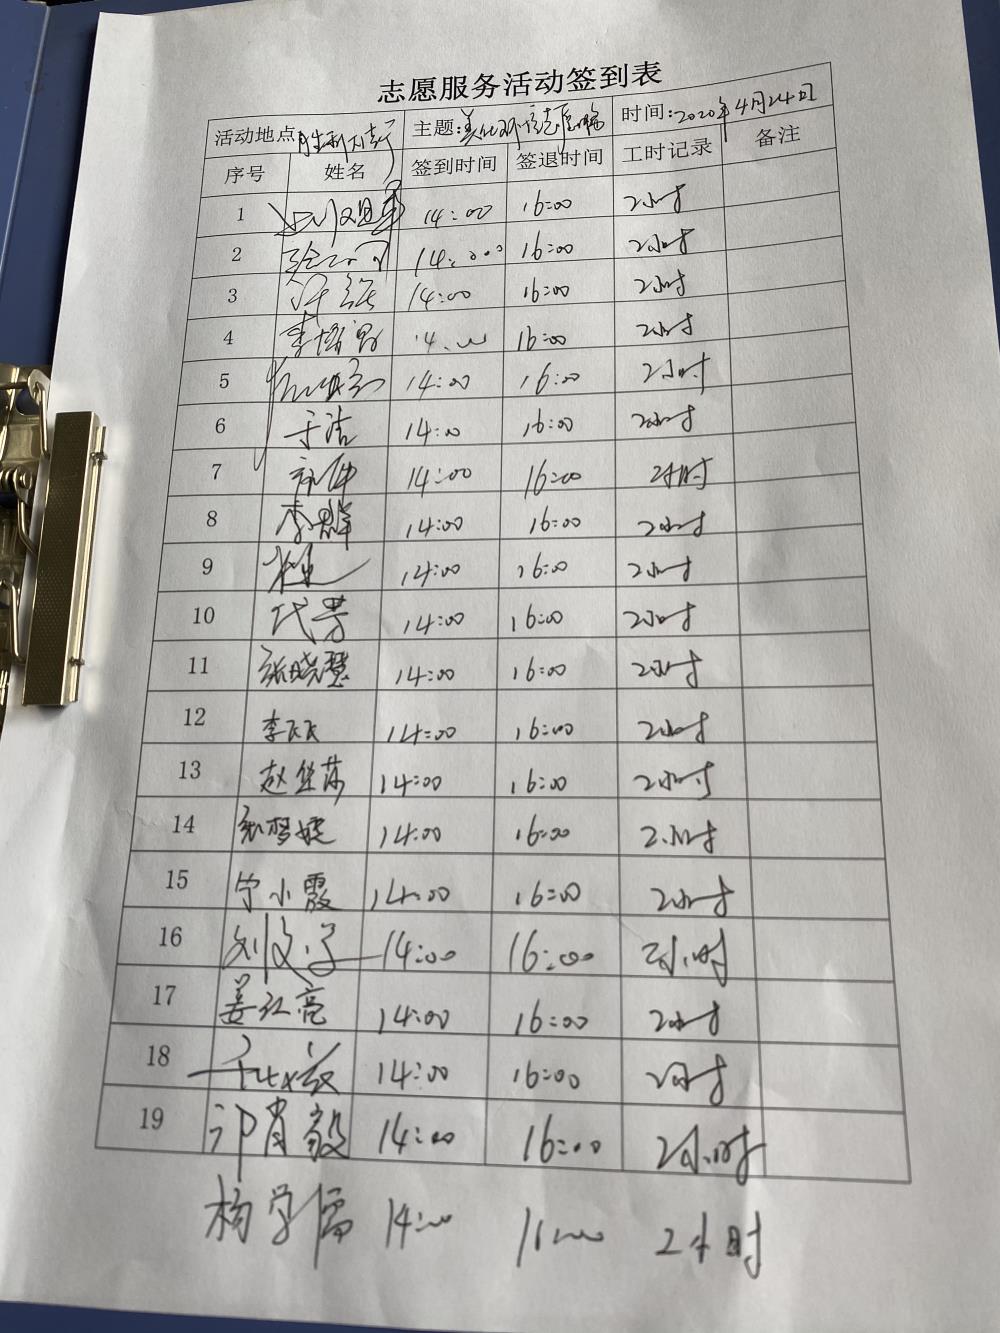 志愿服务活动签到表
活动地点: 主题:美化环境志愿 时间:2020年4月24日
序号 姓名 签到时间 签退时间 工时记录 备注
1 14:00 16:00 2小时
2 14:00 16:00 2小时
3 14:00 16:00 2小时
4 14:00 16:00 2小时
5 14:00 16:00 2小时
6 于洁 14:00 16:00 2小时
7 14:00 16:00 2小时
8 李群 14:00 16:00 2小时
9 14:00 16:00 2小时
10 代芳 14:00 16:00 2小时
11 张晓慧 14:00 16:00 2小时
12 14:00 16:00 2小时
13 赵华莎 14:00 16:00 2小时
14 14:00 16:00 2小时
15 宁小霞 14:00 16:00 2小时
16 刘文学 14:00 16:00 2小时
17 姜红亮 14:00 16:00 2小时
18 14:00 16:00 2小时
19 14:00 16:00 2小时
杨学儒 14:00 2小时